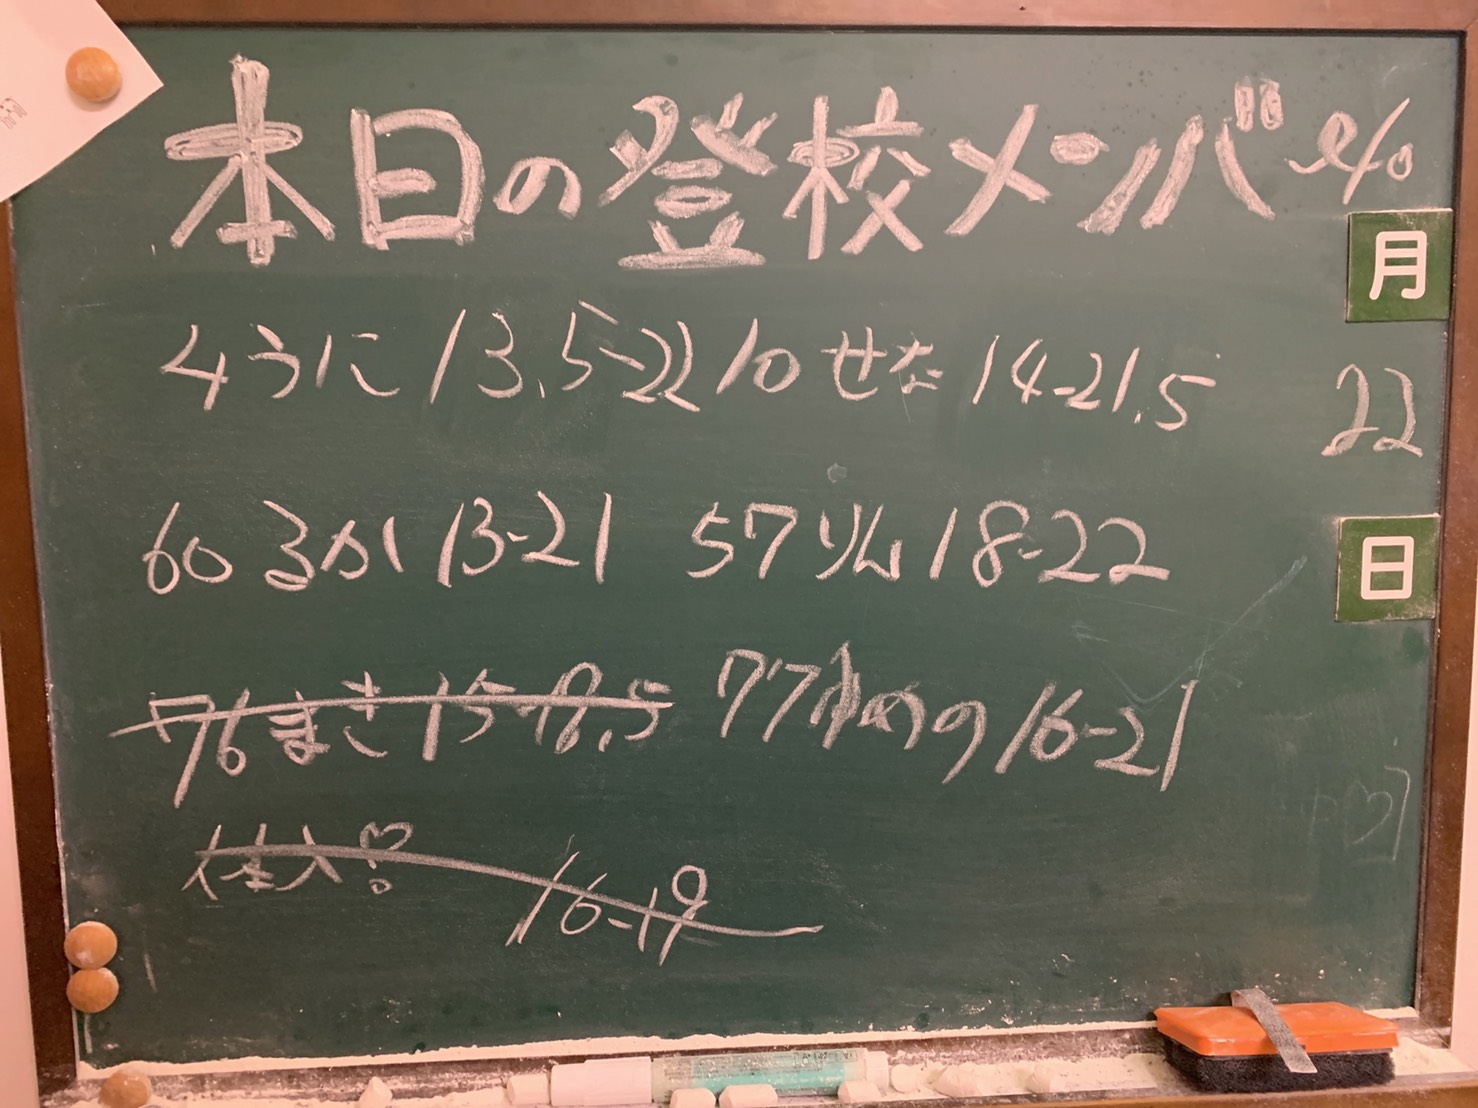 本日の登校メンバー%
月
4うに 13.5-22 10せな 14-21.5
22
60るか 13-21 57りん 18-22
日
76まさ 15-19.5 77ゆめの 16-21
体入♡ 16-19